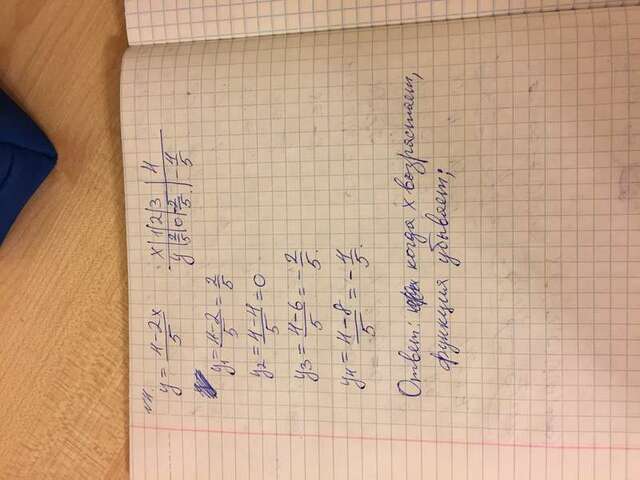 №4
y = (4-2x)/5
x | 1 | 2 | 3 | 4
y | 2/5 | 0 | -2/5 | -4/5
y₁ = (4-2)/5 = 2/5
y₂ = (4-4)/5 = 0
y₃ = (4-6)/5 = -2/5.
y₄ = (4-8)/5 = -4/5.
Ответ: когда x возрастает,
функция убывает;